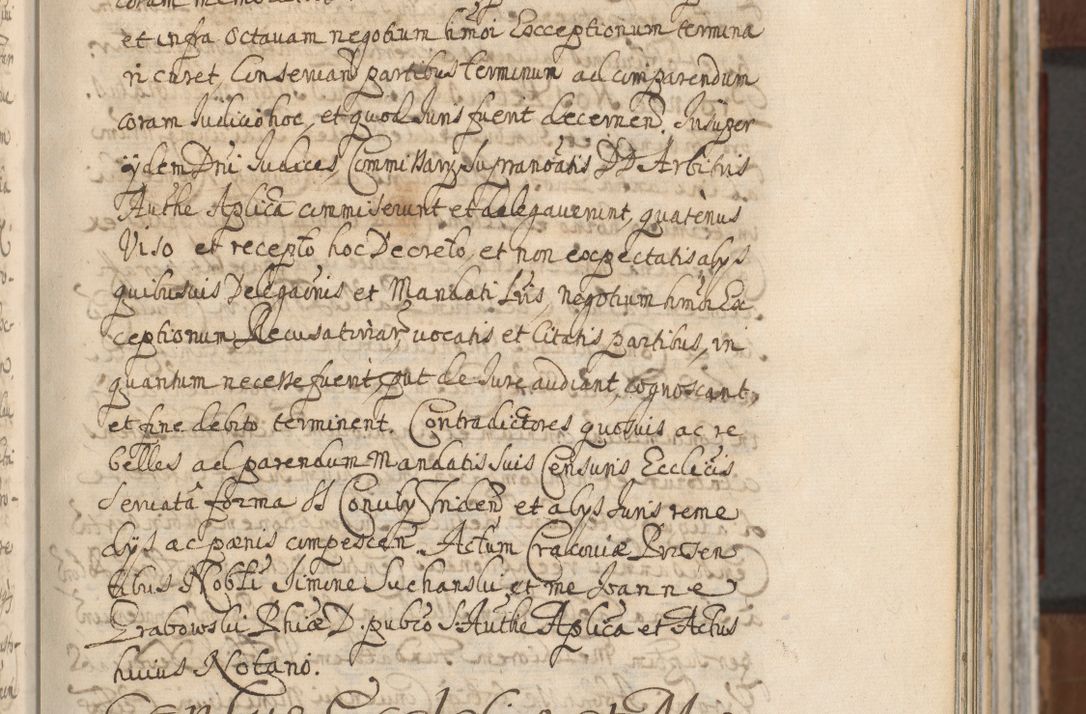 et infra octavam negotium hmoi Exceptionum termina
ri curet, Conservan partibus terminum ad comparendum
coram Judicio hoc, et quod Juris fuerit decernen. Insuper
ijdem Dni Judices, Commissarij supranoatis DD Arbitris
Authe Aplica commiserunt et delegaverunt, quatenus
Viso et recepto hoc Decreto, et non expectatis alijs
quibusvis Delegaonis et Mandati Lris, negotium hmoi Ex
ceptionum Recusatoriar, vocatis et Citatis partibus, in
quantum necesse fuerit, put de Jure audiant, cognoscant,
et fine debito terminent. Contradictores quosvis ac re
belles ad parendum Mandatis suis Censuris Ecclicis
servata forma SS Concilij Triden et alijs Juris reme
dijs ac pænis compescen. Actum Cracoviæ Præsen
tibus Nobli Simone Suchanski, et me Joanne
Grabowski Phiæ D. publco S. Authe Aplica et Actus
huius Notario.